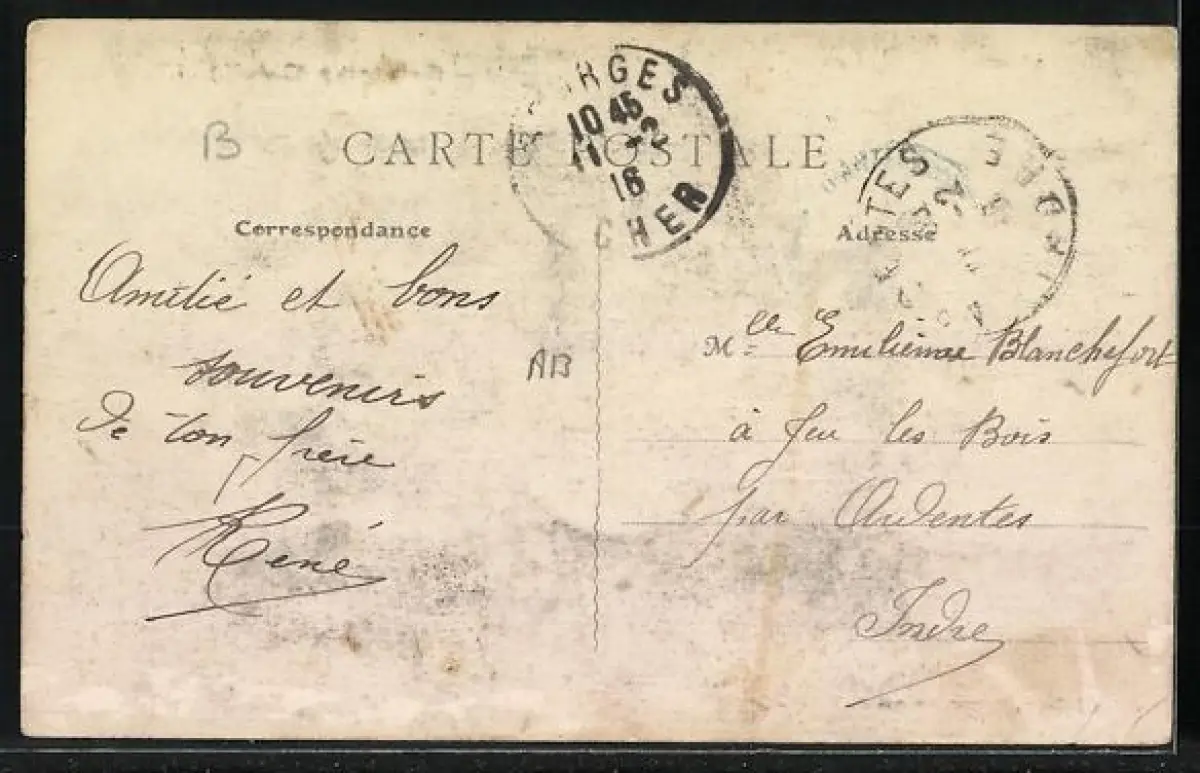 B
CARTE POSTALE
RGES
10 45
11 -2
16
CHER
TES
INDRE
Correspondance
Adresse
Amitié et bons
souvenirs
De ton frère
René
AB
Mlle Emilienne Blanchefort
à Jeu les Bois
par Ardentes
Indre